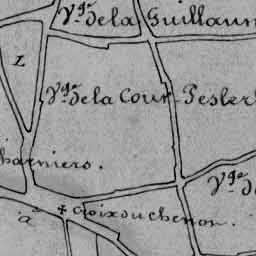 Vge. de la Guillaum
L
Vge. de la Cour
Pesler
harniers.
Vge. d
a
+ Croix du chenon.